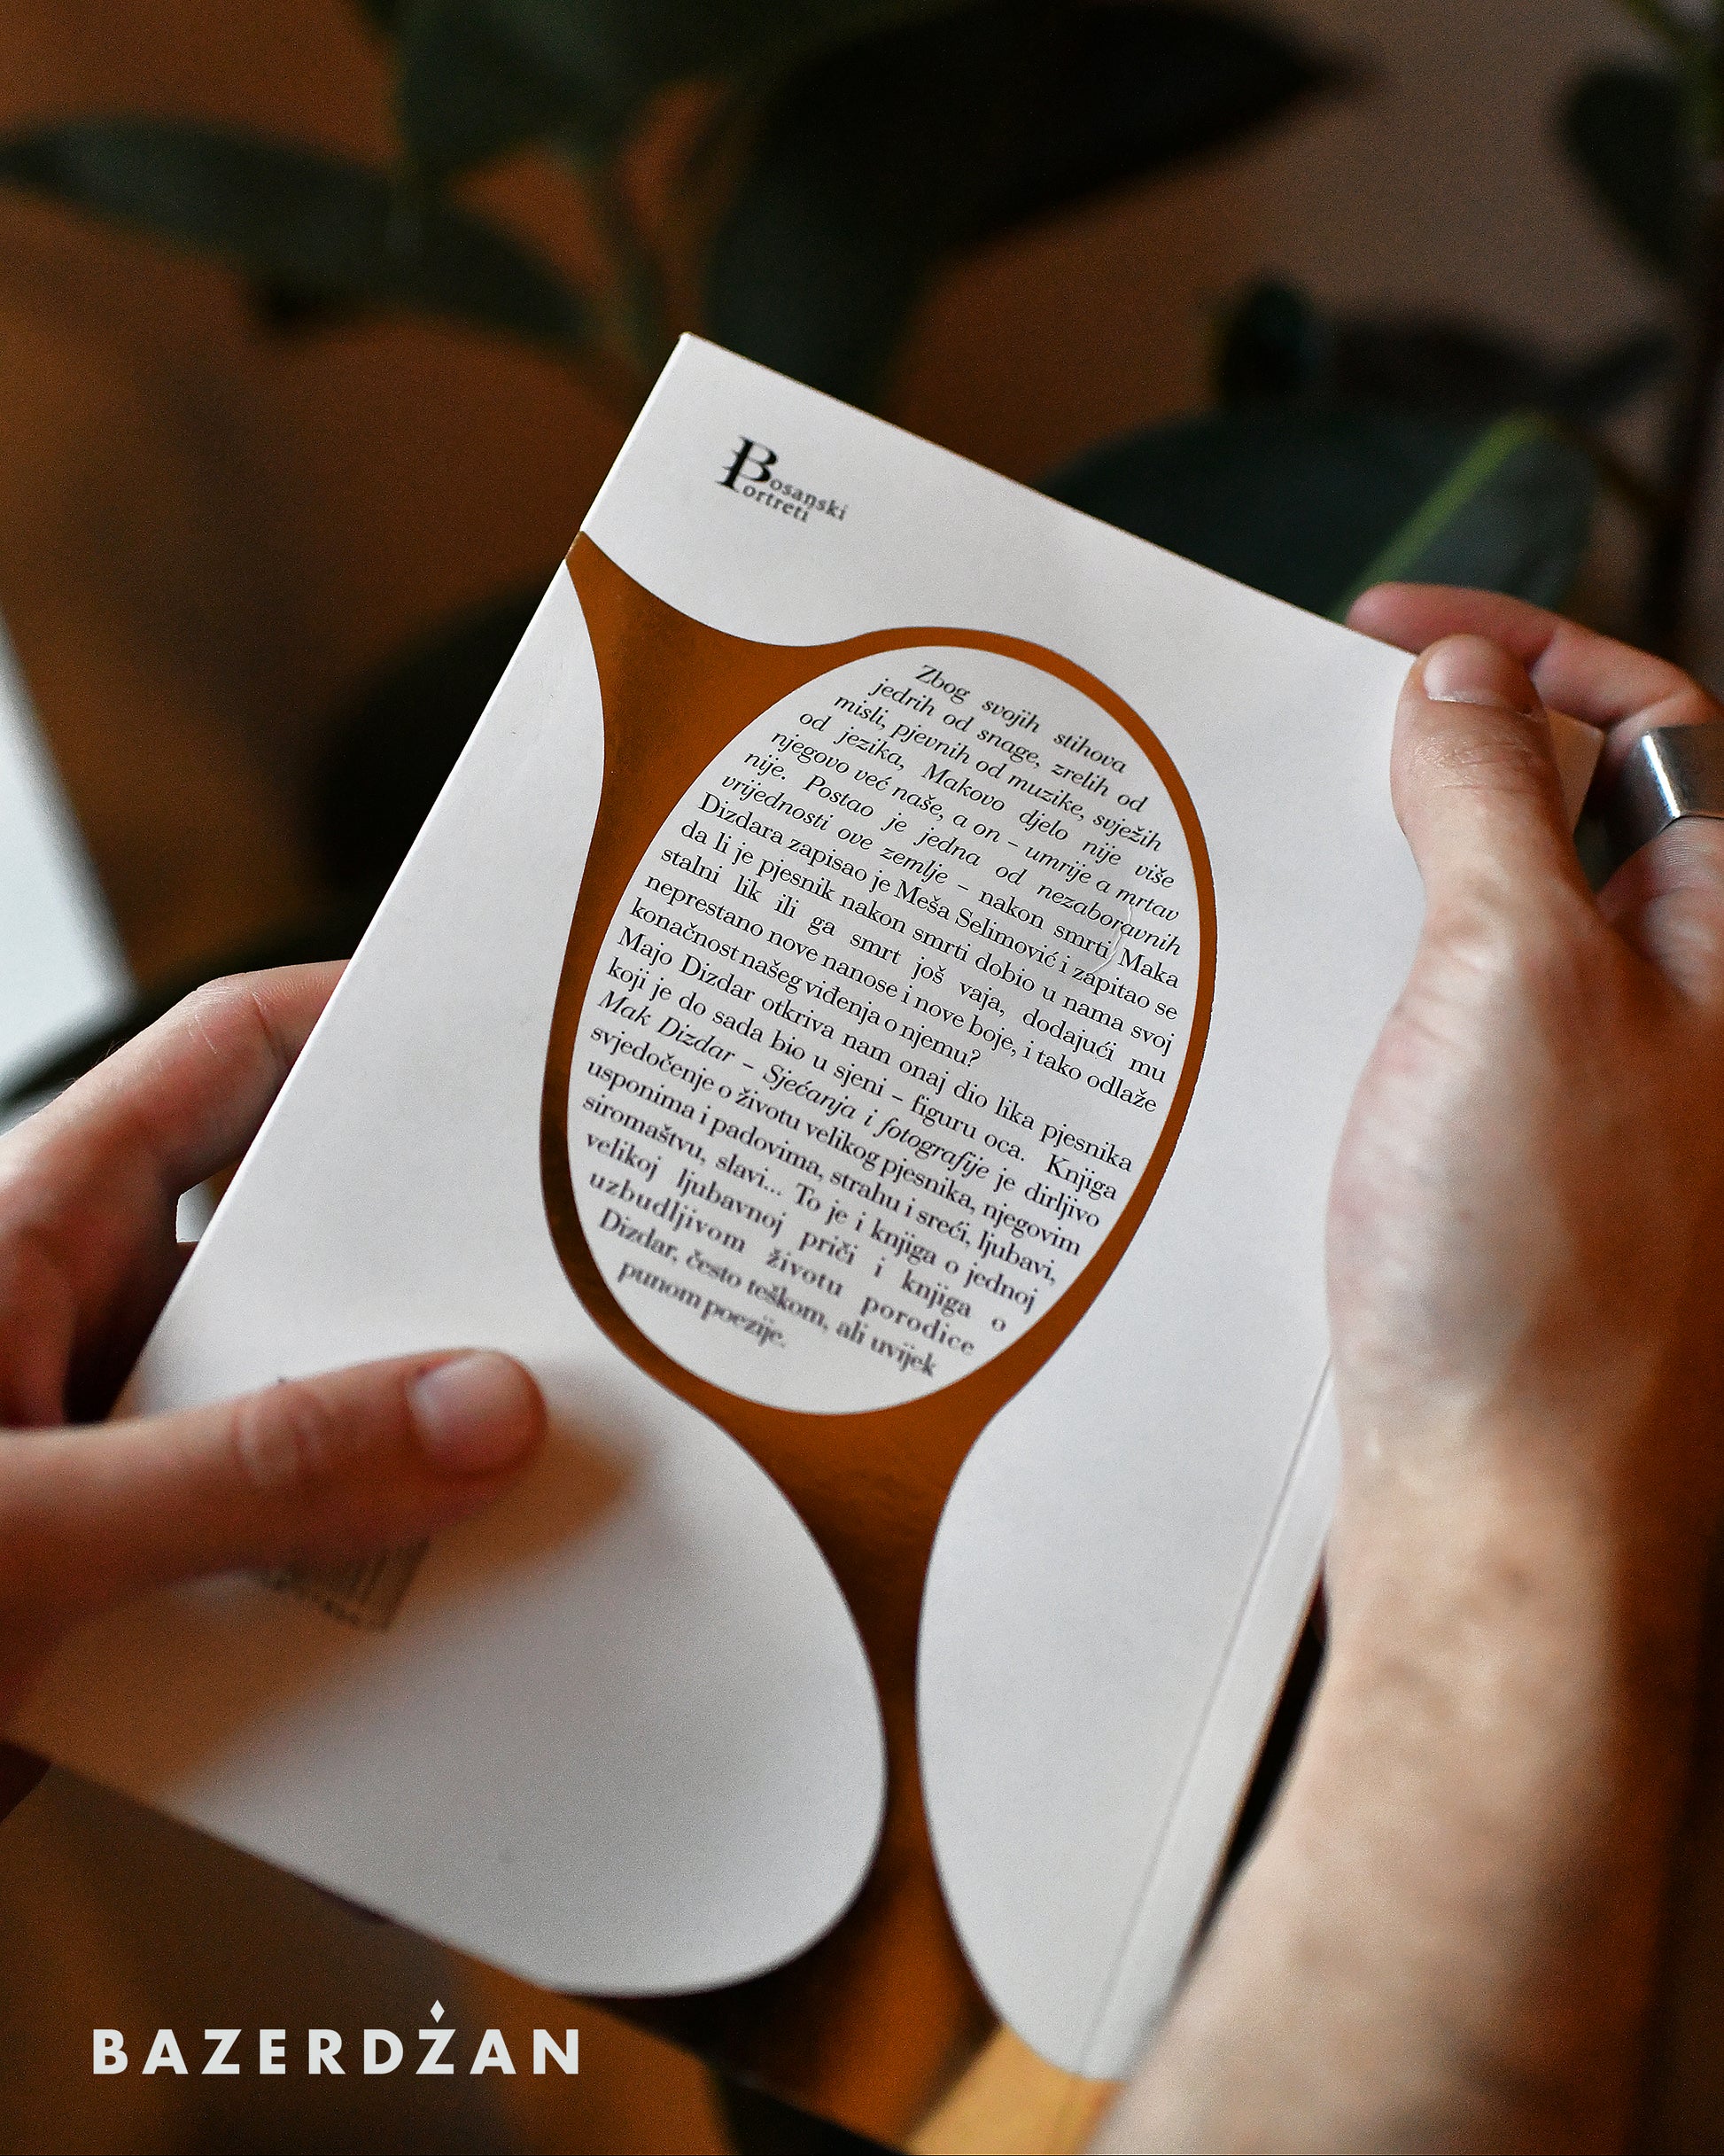 Bosanski
Portreti
Zbog svojih stihova
jedrih od snage, zrelih od
misli, pjevnih od muzike, svježih
od jezika, Makovo djelo nije više
njegovo već naše, a on – umrije a mrtav
nije. Postao je jedna od nezaboravnih
vrijednosti ove zemlje – nakon smrti Maka
Dizdara zapisao je Meša Selimović i zapitao se
da li je pjesnik nakon smrti dobio u nama svoj
stalni lik ili ga smrt još vaja, dodajući mu
neprestano nove nanose i nove boje, i tako odlaže
konačnost našeg viđenja o njemu?
Majo Dizdar otkriva nam onaj dio lika pjesnika
koji je do sada bio u sjeni – figuru oca. Knjiga
Mak Dizdar – Sjećanja i fotografije je dirljivo
svjedočenje o životu velikog pjesnika, njegovim
usponima i padovima, strahu i sreći, ljubavi,
siromaštvu, slavi... To je i knjiga o jednoj
velikoj ljubavnoj priči i knjiga o
uzbudljivom životu porodice
Dizdar, često teškom, ali uvijek
punom poezije.
BAZERDŽAN